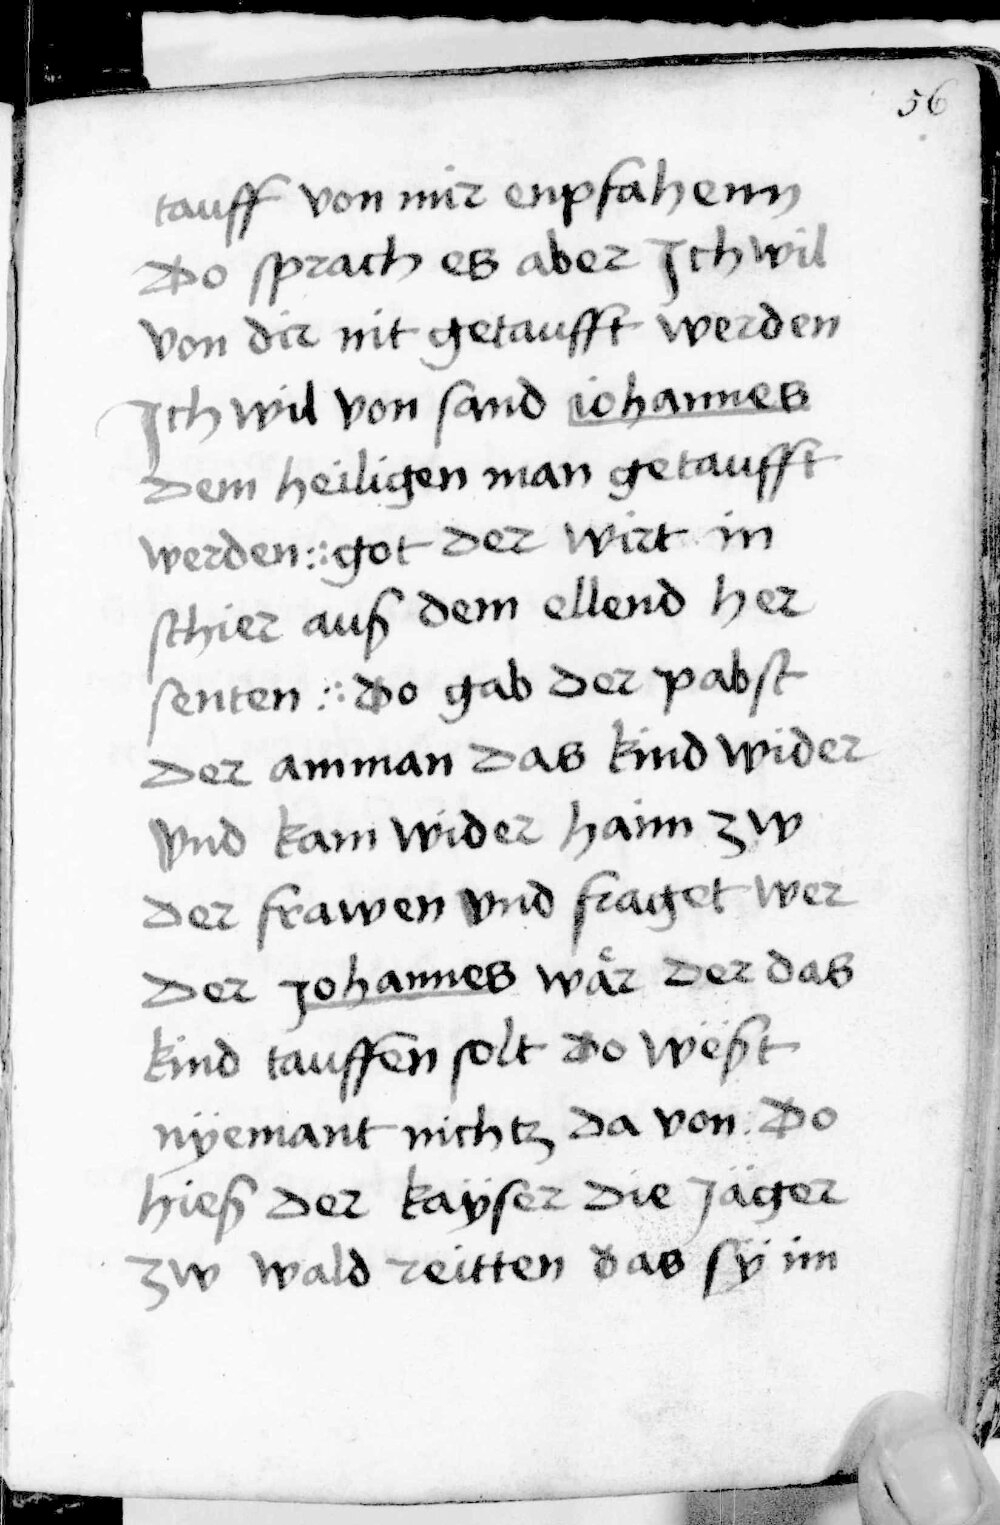 56
tauff von mir enpfahenn
Do sprach es aber Ich wil
von dir nit getaufft werden
Ich wil von sand iohannes
dem heiligen man getaufft
werden :: got der wirt in
schier auß dem ellend her
senten :: Do gab der pabst
der amman das kind wider
vnd kam wider haim zw
der frawen vnd fraget wer
der Johannes wår der das
kind tauffen solt Do weßt
nÿemant nichtz da von : Do
hieß der kaÿser die Jäger
zw wald reitten das sÿ im